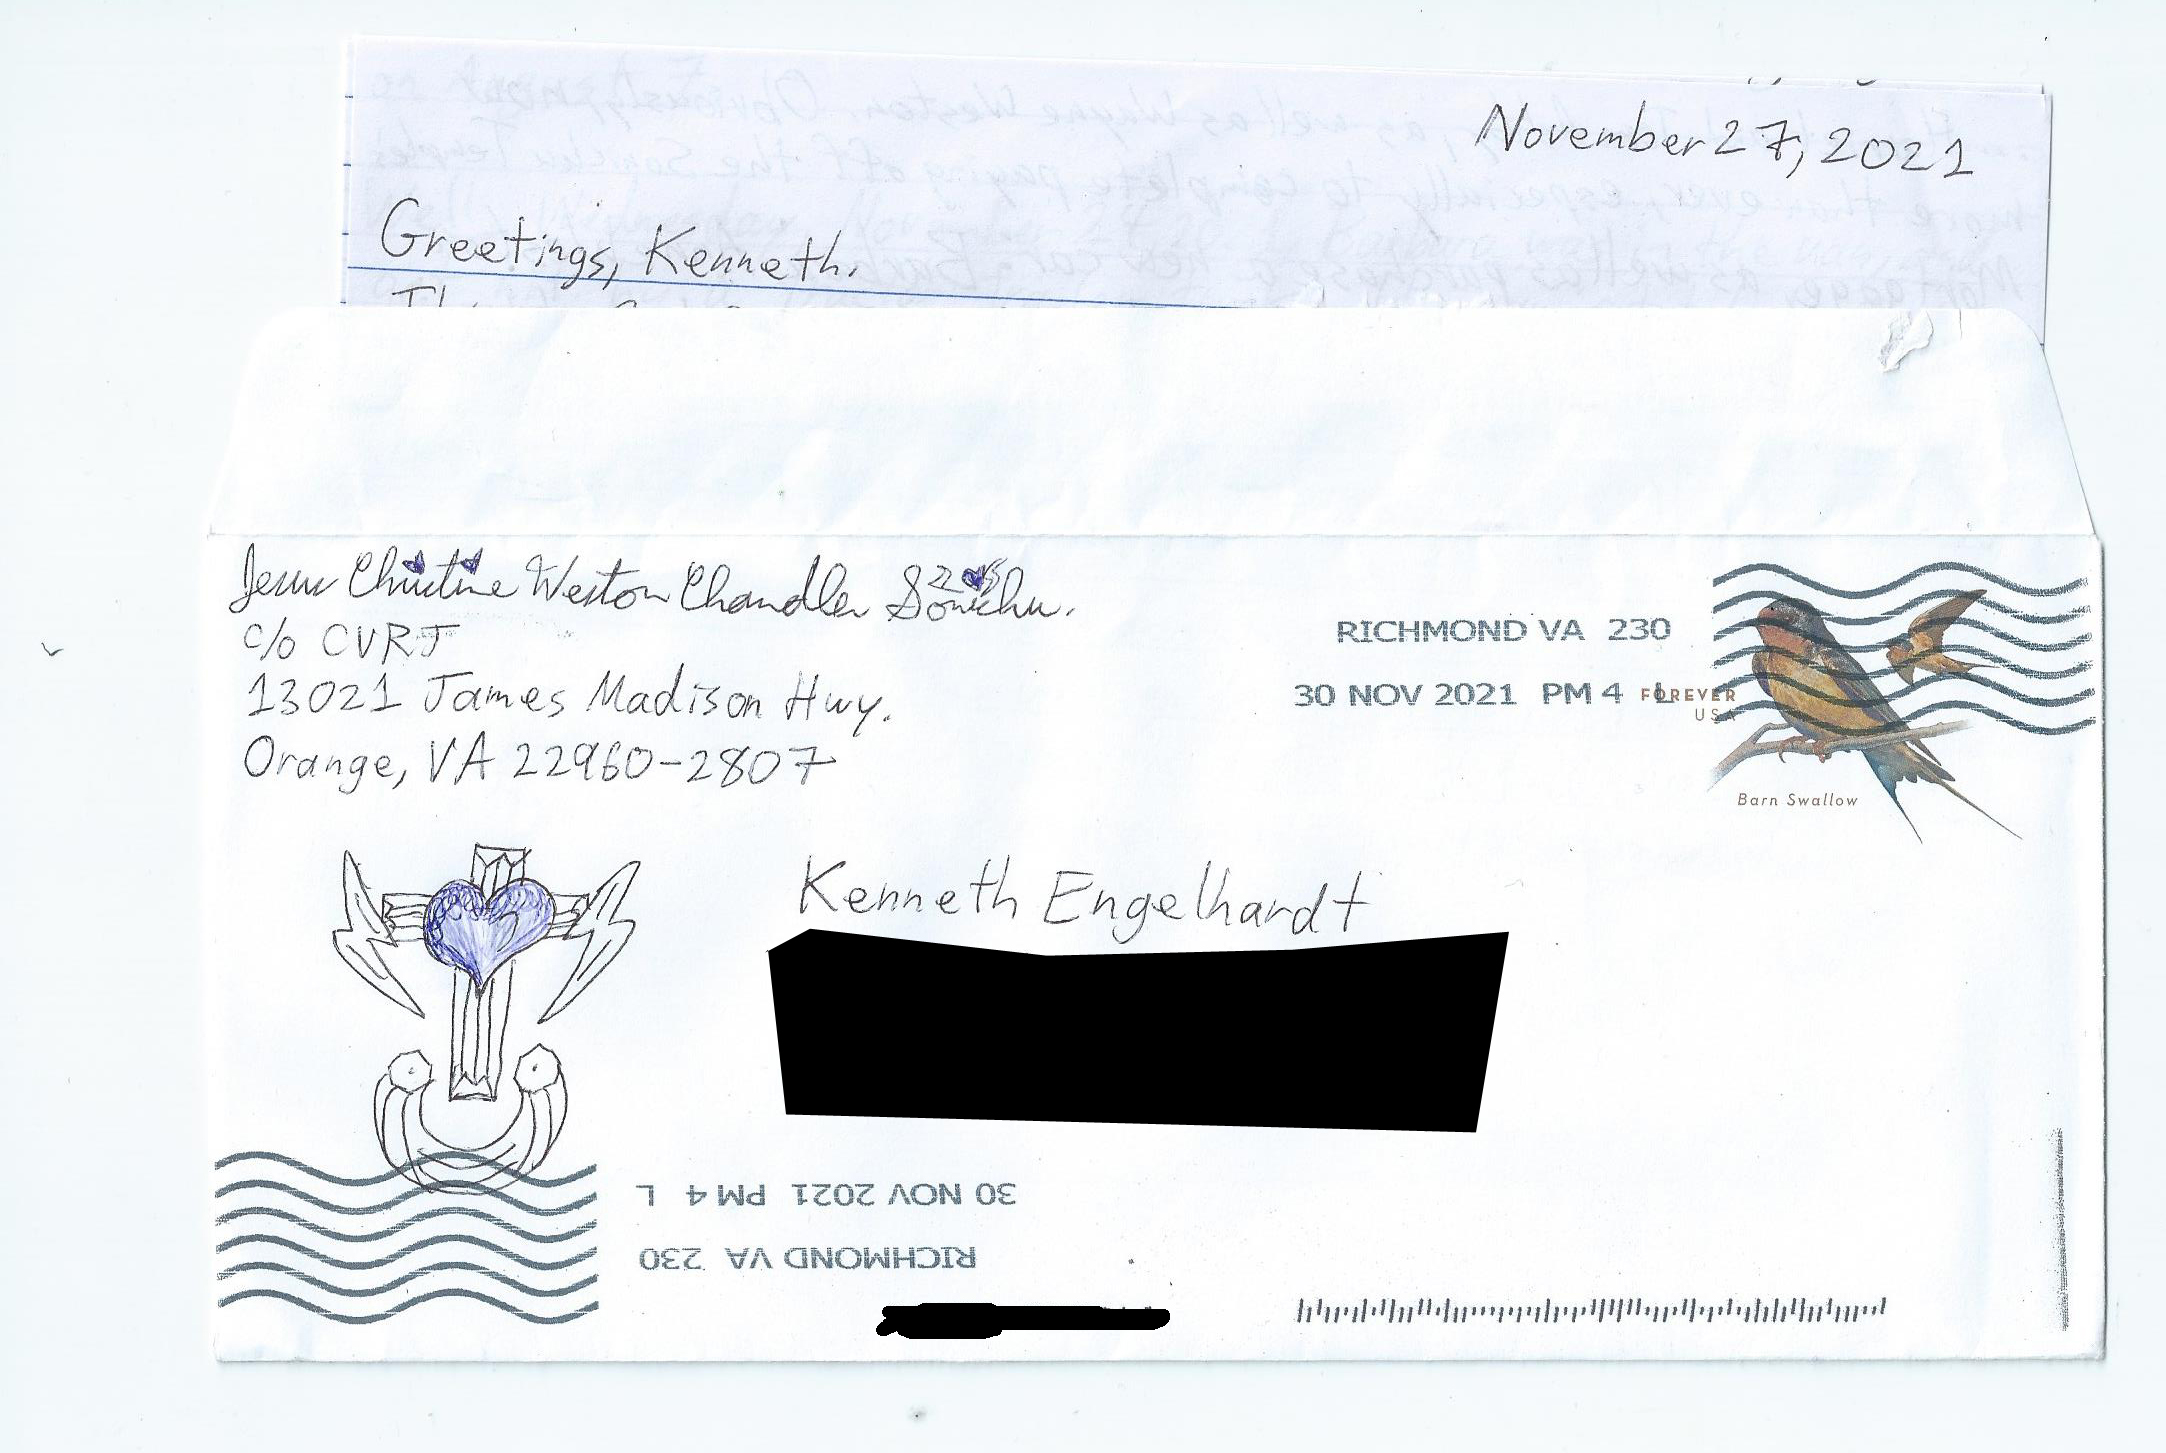 November 27, 2021
Greetings, Kenneth.
Jesus Christine Weston Chandler Sonichu.
c/o CVRJ
13021 James Madison Hwy.
Orange, VA 22960-2807
RICHMOND VA 230
30 NOV 2021 PM 4 L
FOREVER
USA
Barn Swallow
Kenneth Engelhardt
30 NOV 2021 PM 4 L
RICHMOND VA 230